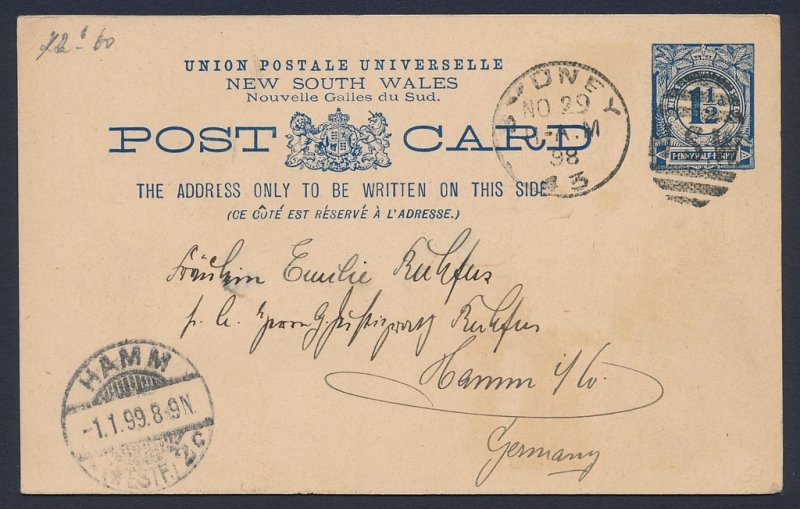 UNION POSTALE UNIVERSELLE
NEW SOUTH WALES
Nouvelle Galles du Sud.
POST CARD
THE ADDRESS ONLY TO BE WRITTEN ON THIS SIDE
(CE CÔTÉ EST RÉSERVÉ À L'ADRESSE.)
1½
PENNY HALFPENNY
SYDNEY
NO 29
98
43
Fräulein Emilie Kuhfus
Justizrath Kuhfus
Hamm i/W.
Germany
HAMM
-1.1.99.8-9N.
(WESTF.) 2c